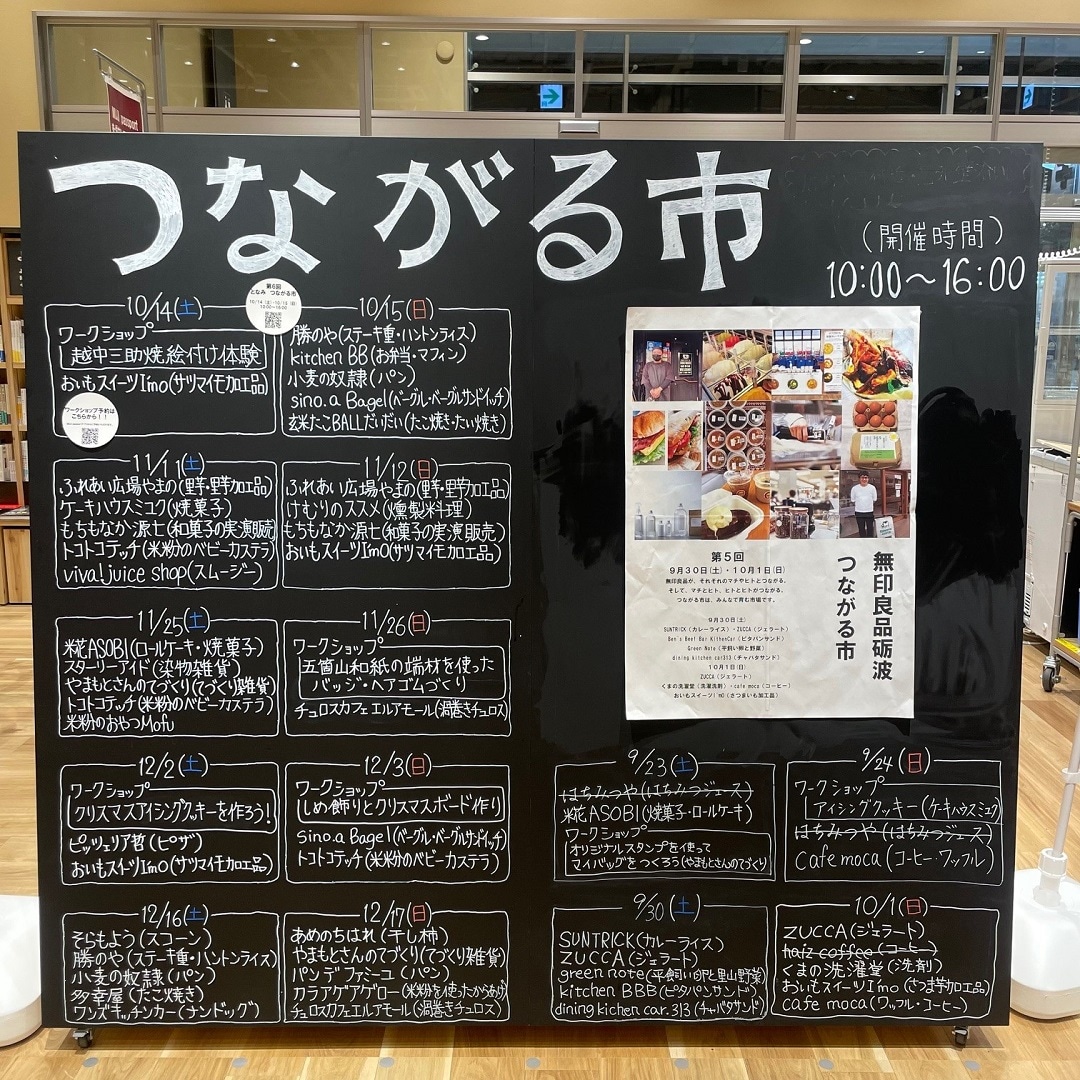 つながる市
（開催時間）
10:00〜16:00
第6回
となみ つながる市
10/14（土）・10/15（日）
10:00〜16:00
10/14(土)
ワークショップ
越中三助焼絵付け体験
おいもスイーツImo(サツマイモ加工品)
ワークショップ予約は
こちらから！！
10/15(日)
勝のや(ステーキ重・ハントンライス)
kitchen BB(お弁当・マフィン)
小麦の奴隷(パン)
sino.a Bagel(ベーグル・ベーグルサンドイッチ)
玄米たこBALLだいだい(たこ焼き・たい焼き)
11/11(土)
ふれあい広場やまの(野芋・野芋加工品)
ケーキハウスミユク(焼菓子)
もちもなか源七(和菓子の実演販売)
トコトコテッチ(米粉のベビーカステラ)
viva!juice shop(スムージー)
11/12(日)
ふれあい広場やまの(野芋・野芋加工品)
けむりのススメ(燻製米料理)
もちもなか源七(和菓子の実演販売)
おいもスイーツImO(サツマイモ加工品)
11/25(土)
糀ASOBI(ロールケーキ・焼菓子)
スターリーアイド(染物雑貨)
やまもとさんのてづくり(てづくり雑貨)
トコトコテッチ(米粉のベビーカステラ)
米粉のおやつMofu
11/26(日)
ワークショップ
五箇山和紙の端材を使った
バッジ・ヘアゴムづくり
チュロスカフェエルアモール(渦巻きチュロス)
12/2(土)
ワークショップ
クリスマスアイシングクッキーを作ろう!
ピッツェリア哲(ピザ)
おいもスイーツImO(サツマイモ加工品)
12/3(日)
ワークショップ
しめ飾りとクリスマスボード作り
sino.a Bagel(ベーグル・ベーグルサンドイッチ)
トコトコテッチ(米粉のベビーカステラ)
12/16(土)
そらもよう(スコーン)
勝のや(ステーキ重・ハントンライス)
小麦の奴隷(パン)
多幸屋(たこ焼き)
ワンズキッチンカー(ナンドッグ)
12/17(日)
あめのちはれ(干し柿)
やまもとさんのてづくり(てづくり雑貨)
パンデファミーユ(パン)
カラアゲアゲロー(米粉を使ったからあげ)
チュロスカフェエルアモール(渦巻きチュロス)
無印良品砺波
つながる市
第5回
9月30日（土）・10月1日（日）
無印良品が、それぞれのマチやヒトとつながる。
そして、マチとヒト、ヒトとヒトがつながる。
つながる市は、みんなで育む市場です。
9月30日（土）
SUNTRICK（カレーライス）・ZUCCA（ジェラート）
Ben's Beef Bar KitchenCar（ピタパンサンド）
Green Note（平飼い卵と野菜）
dining kitchen car313（チャバタサンド）
10月1日（日）
ZUCCA（ジェラート）
くまの洗濯堂（洗濯洗剤）・cafe moca（コーヒー）
おいもスイーツImO（さつまいも加工品）
9/23(土)
はちみつや(はちみつジュース)
糀ASOBI(焼菓子・ロールケーキ)
ワークショップ
オリジナルスタンプを使って
マイバッグをつくろう(やまもとさんのてづくり)
9/24(日)
ワークショップ
アイシングクッキー(ケーキハウスミユク)
はちみつや(はちみつジュース)
cafe moca(コーヒー・ワッフル)
9/30(土)
SUNTRICK(カレーライス)
ZUCCA(ジェラート)
green note(平飼い卵と里山野菜)
kitchen BBB(ピタパンサンド)
dining kichen car.313(チャバタサンド)
10/1(日)
ZUCCA(ジェラート)
haiz coffee(コーヒー)
くまの洗濯堂(洗剤)
おいもスイーツImo(さつま芋加工品)
cafe moca(ワッフル・コーヒー)